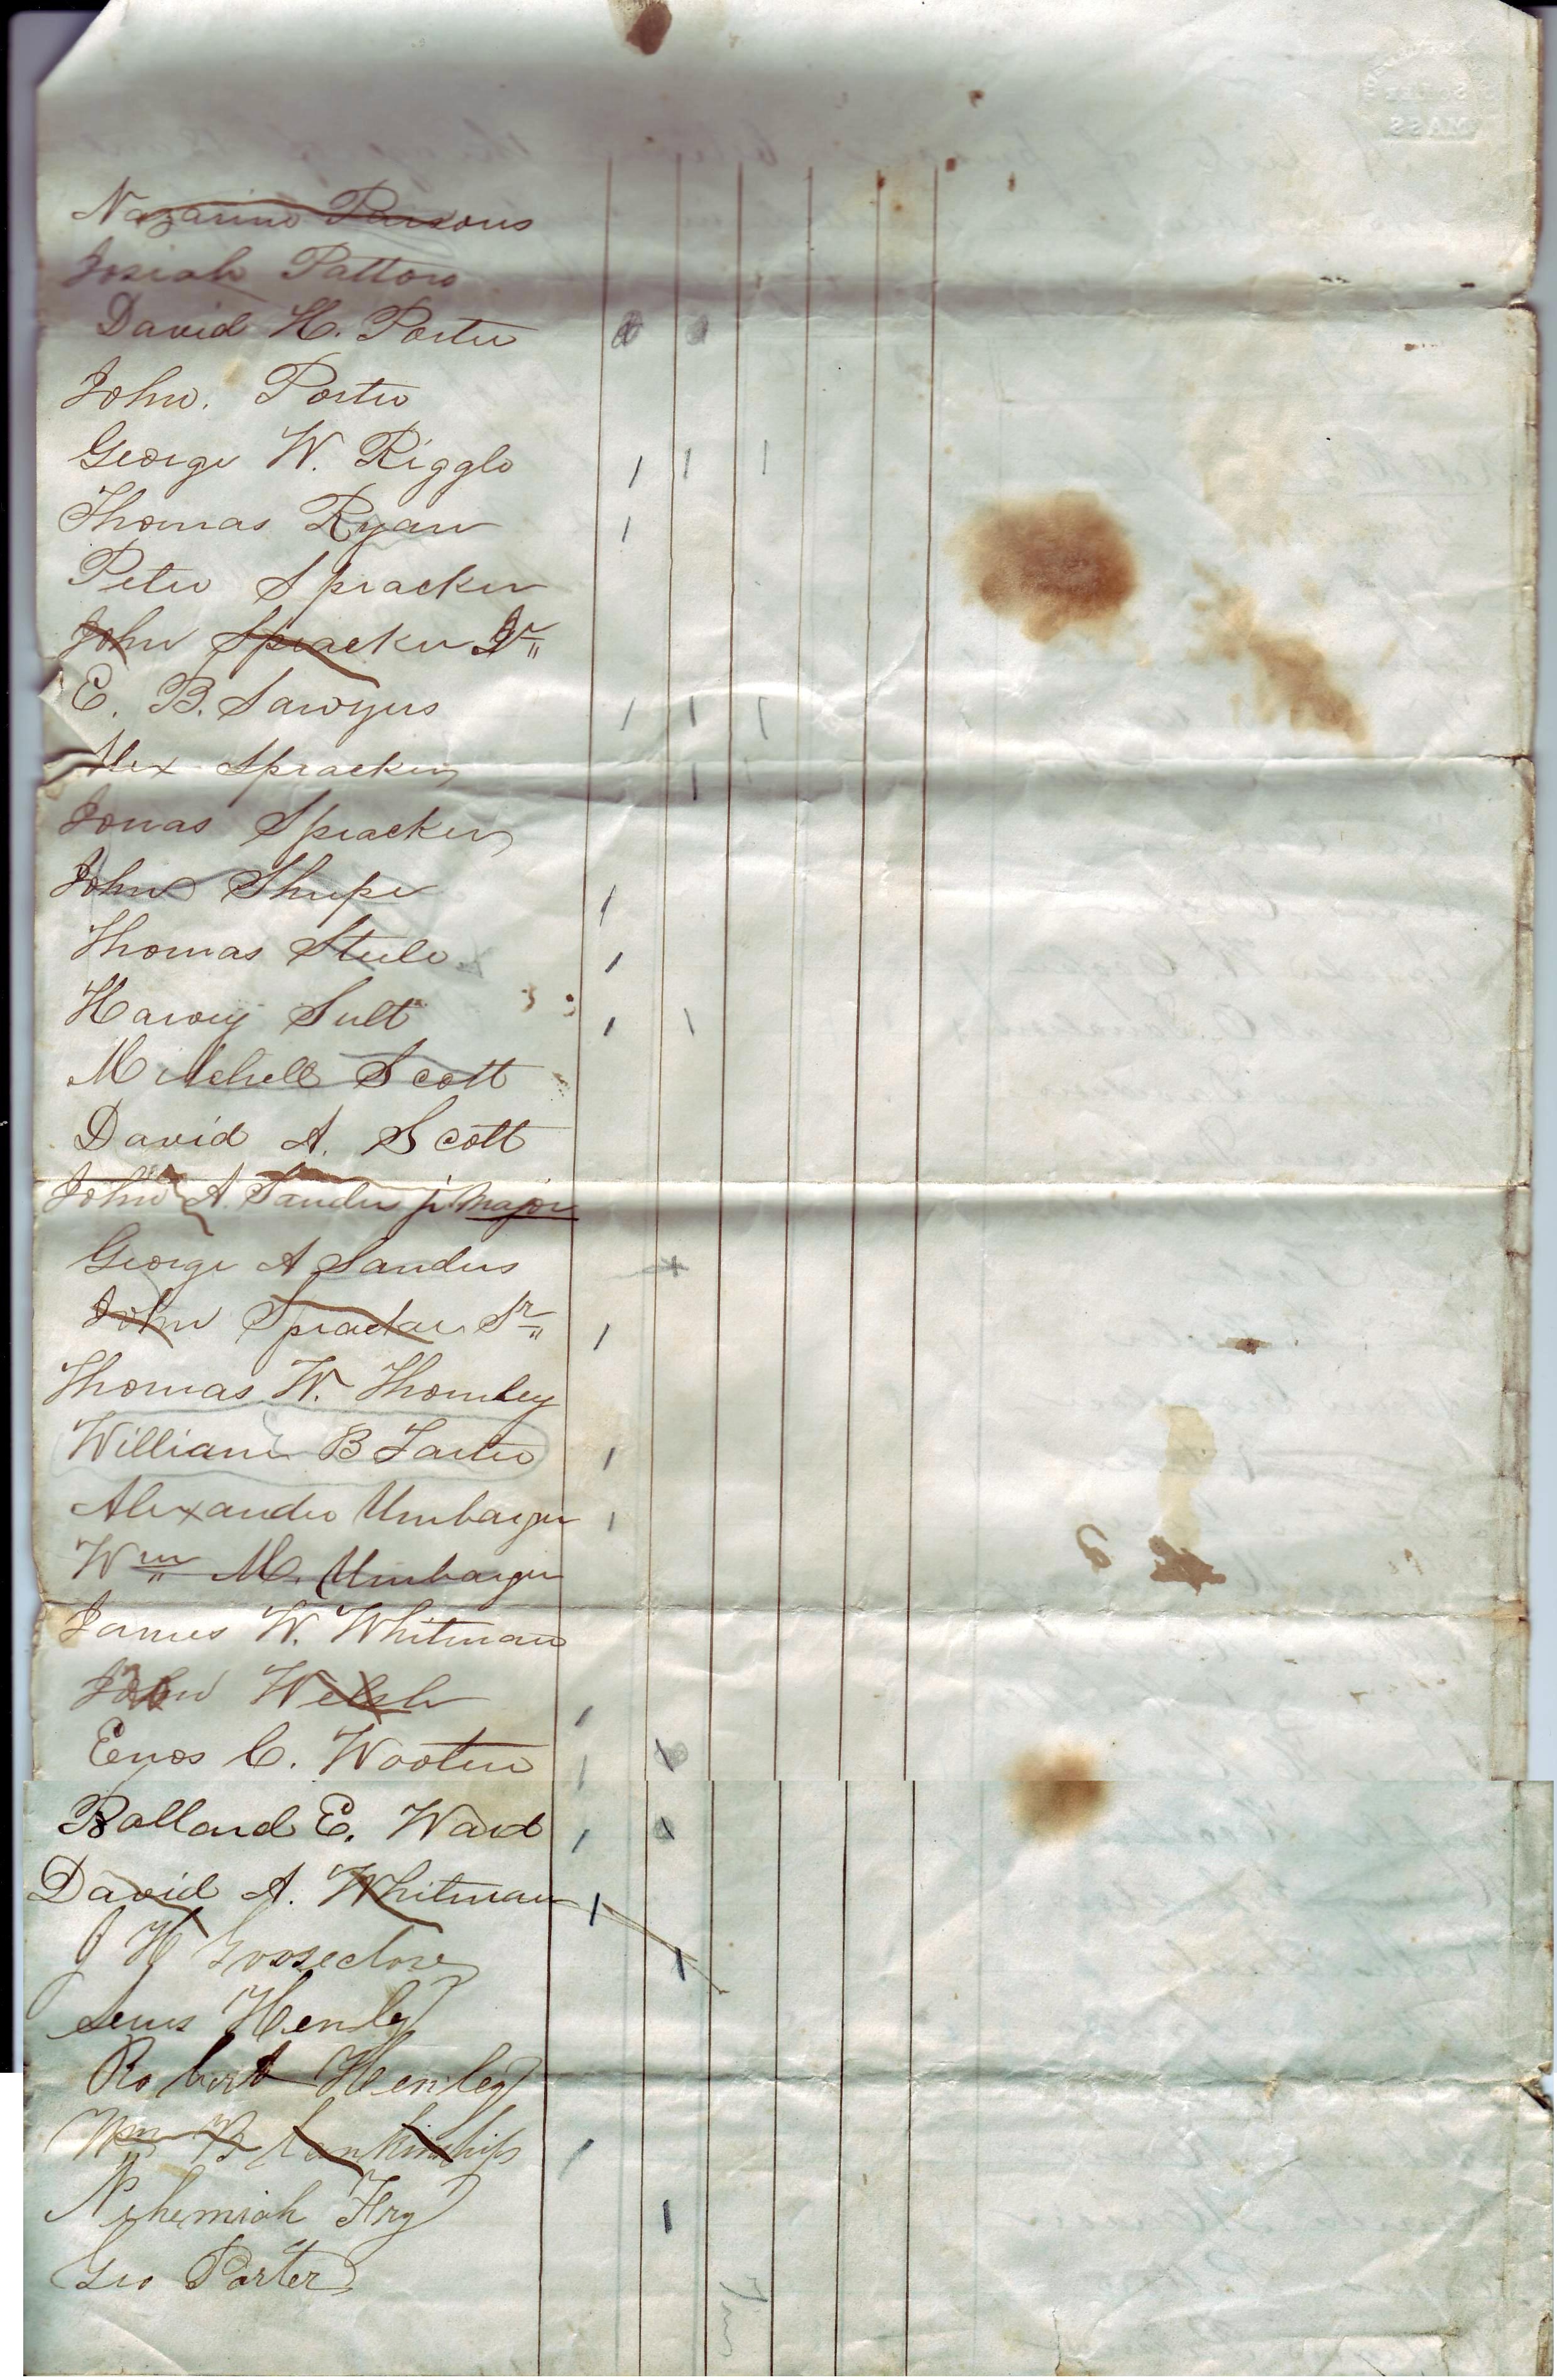 MASS
Nazarino Parsons
Josiah Patton
David H. Porter
John. Porter
George W. Riggle
Thomas Ryan
Peter Spracker
John Spracker Jr
E. B. Sawyers
Alex Spracker
Jonas Spracker
John Shupe
Thomas Steele
Harvey Sult
Mitchell Scott
David A. Scott
John A. Sanders jr Major
George A Sanders
John Spracker Sr
Thomas W. Thornley
William B Tarter
Alexander Umbarger
Wm M. Umbarger
James W. Whitman
John Welsh
Enos C. Wooten
Ballard E. Ward
David A. Whitman
J H Grossclose
Henley
Robert Henley
Wm B Lankinship
Nehemiah Fry
Geo Porter